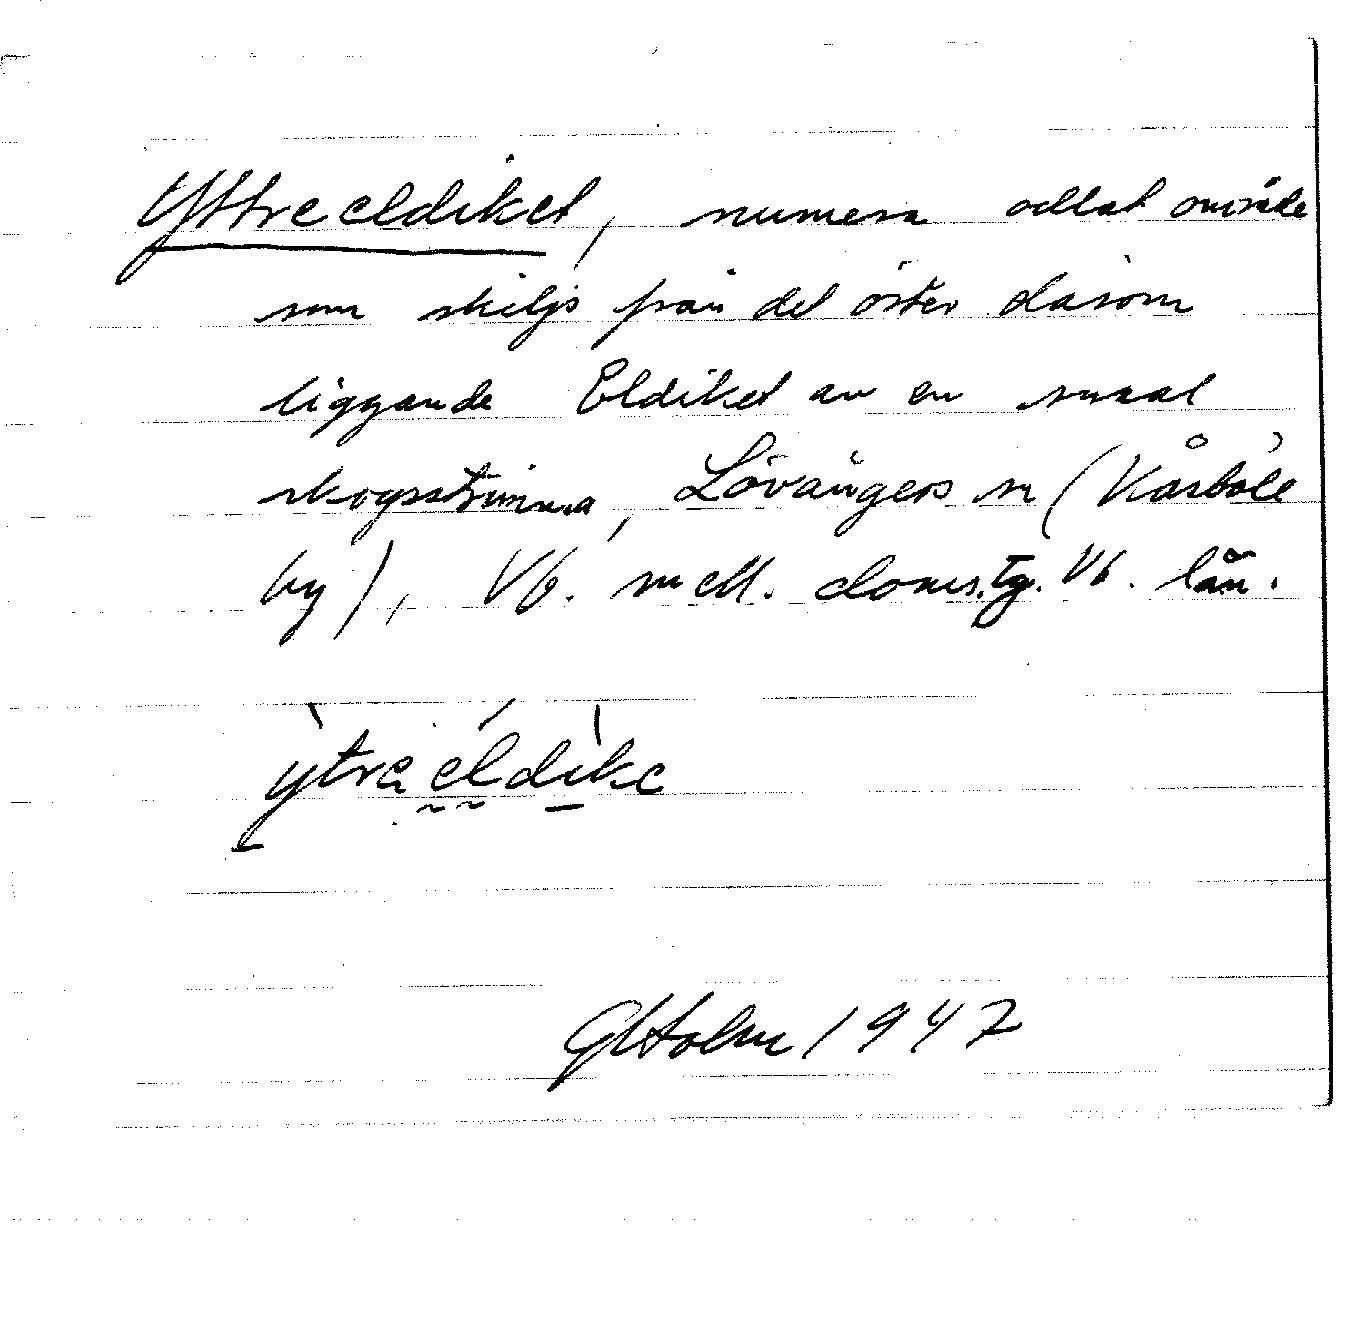 Yttreeldiket, numera odlat område
som skiljs från det öster därom
liggande Eldiket av en smal
skogsstrimma, Lövångers sn (Kåsböle
by), Vb. mell. doms.tg. Vb. län.
ytre eldike
GHolm 1947